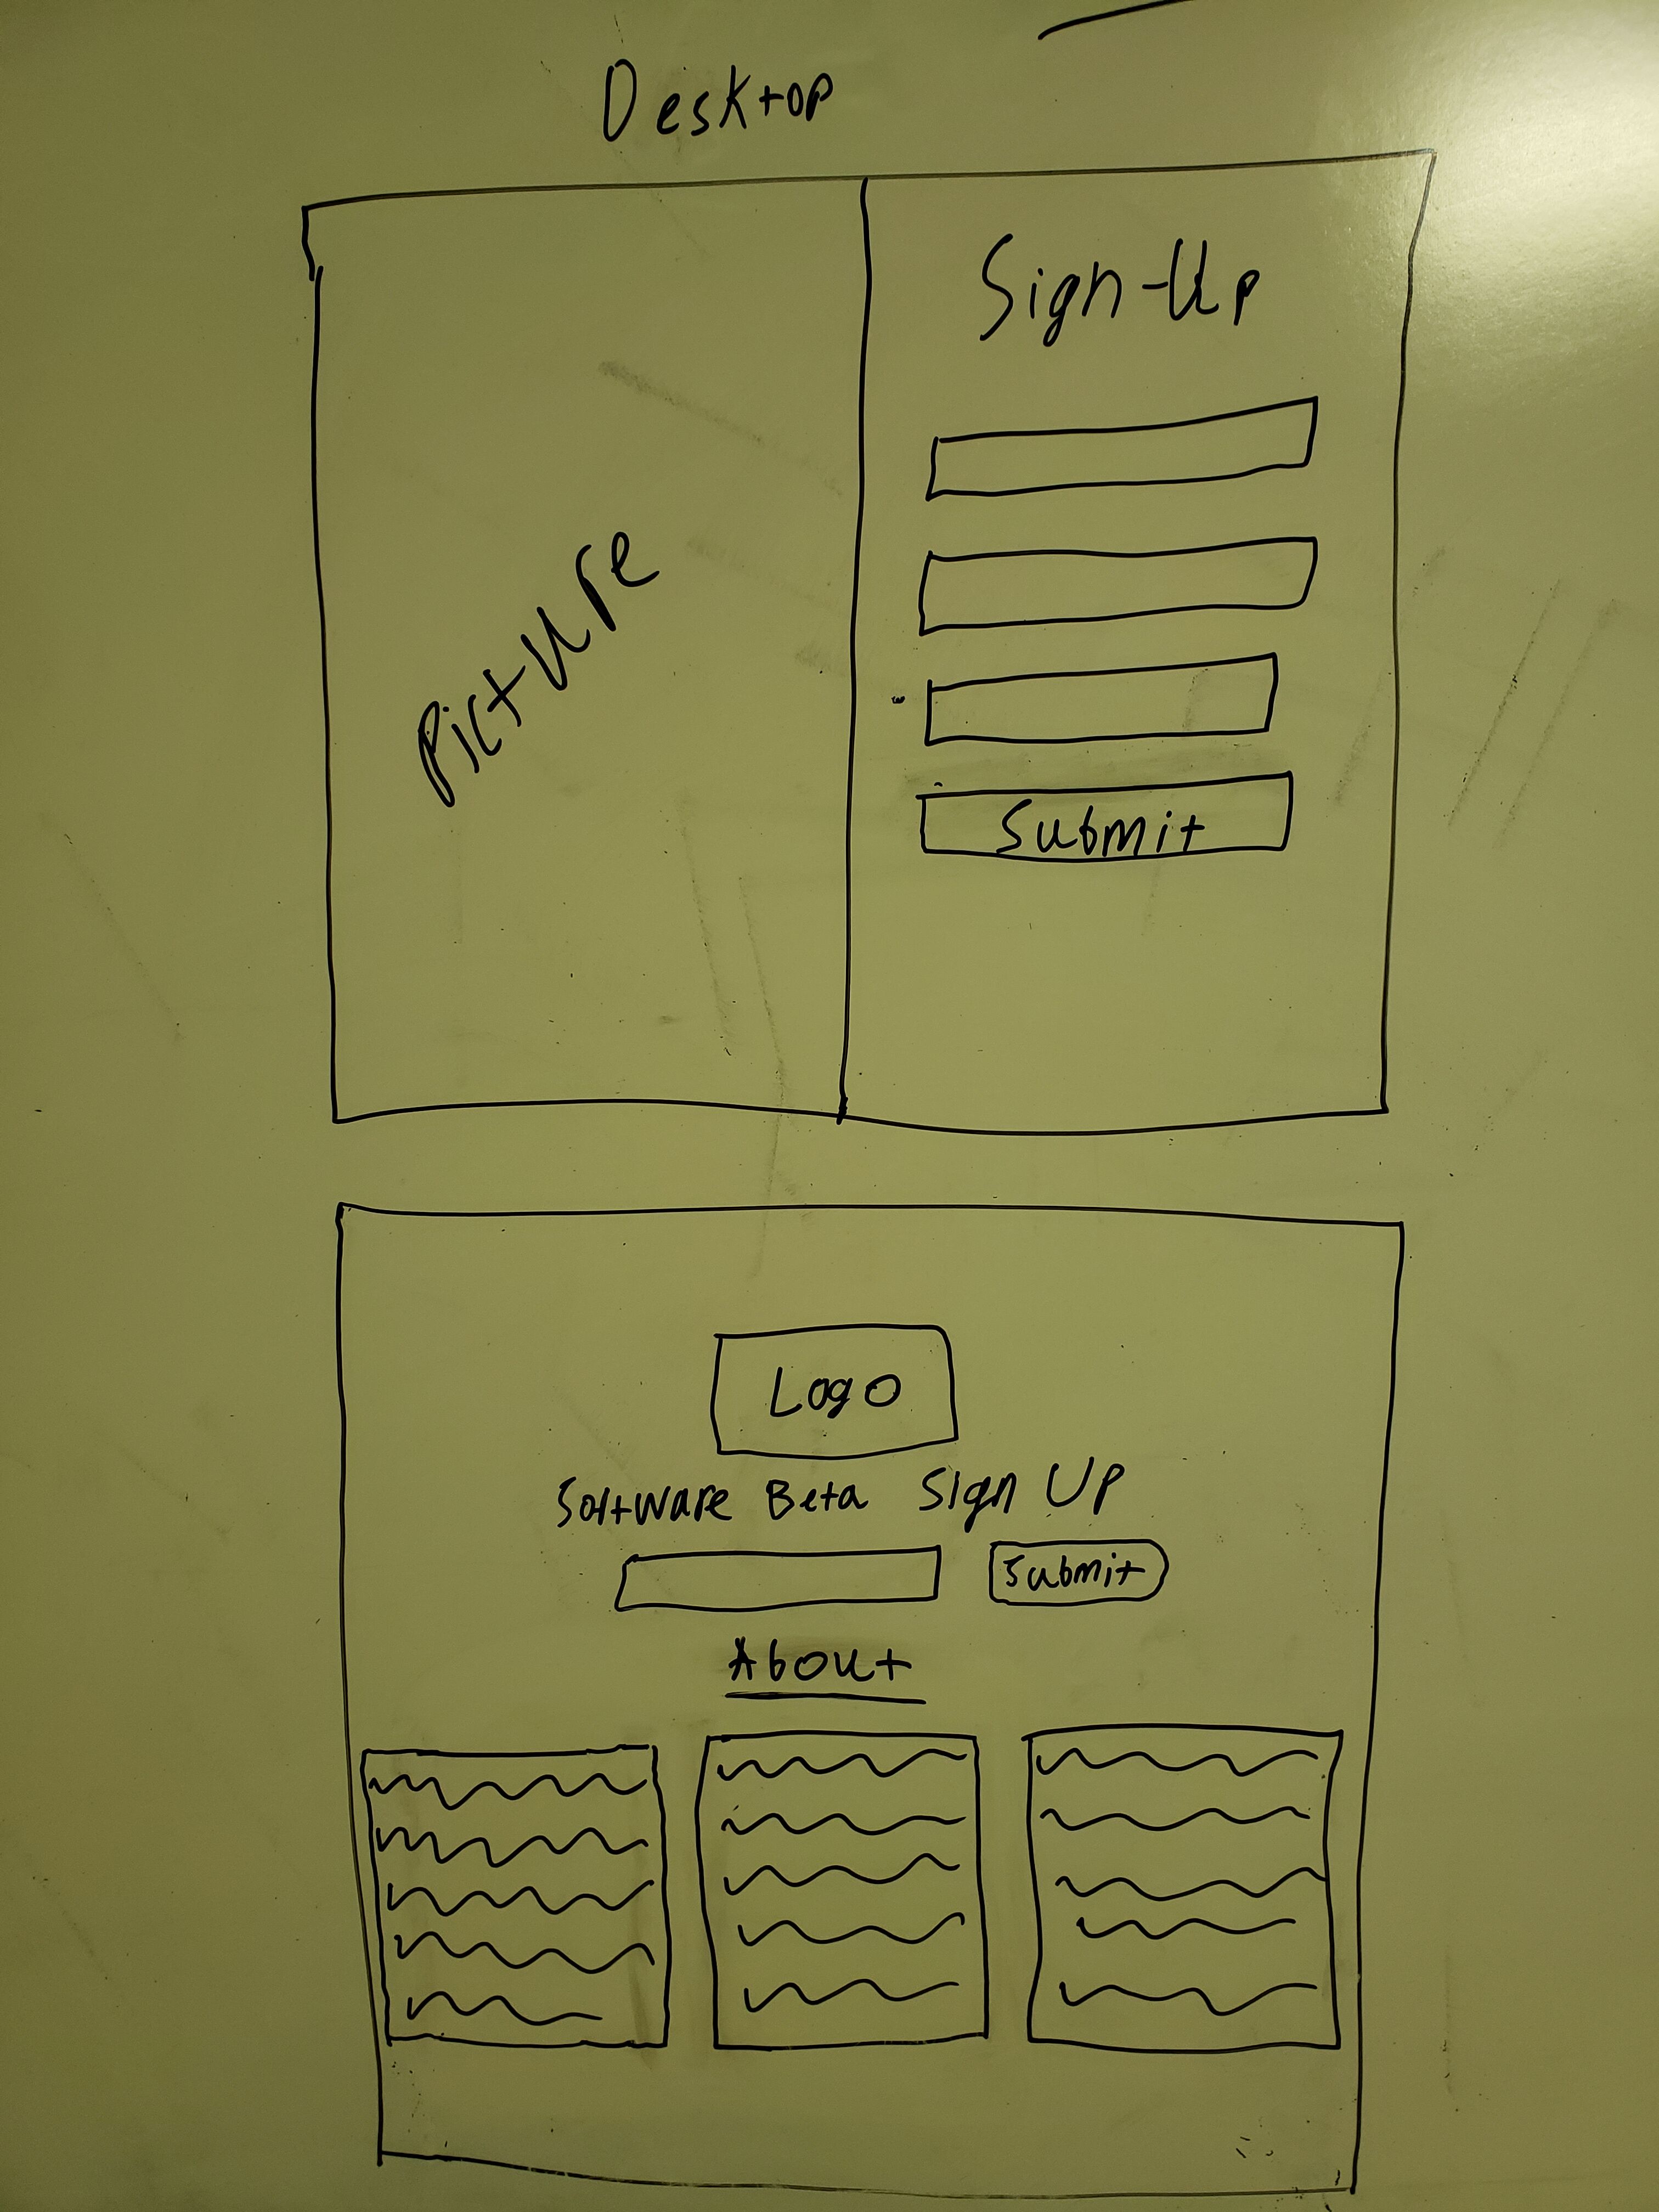 Desktop
Sign-Up
Picture
Submit
Logo
Software Beta Sign Up
Submit
About